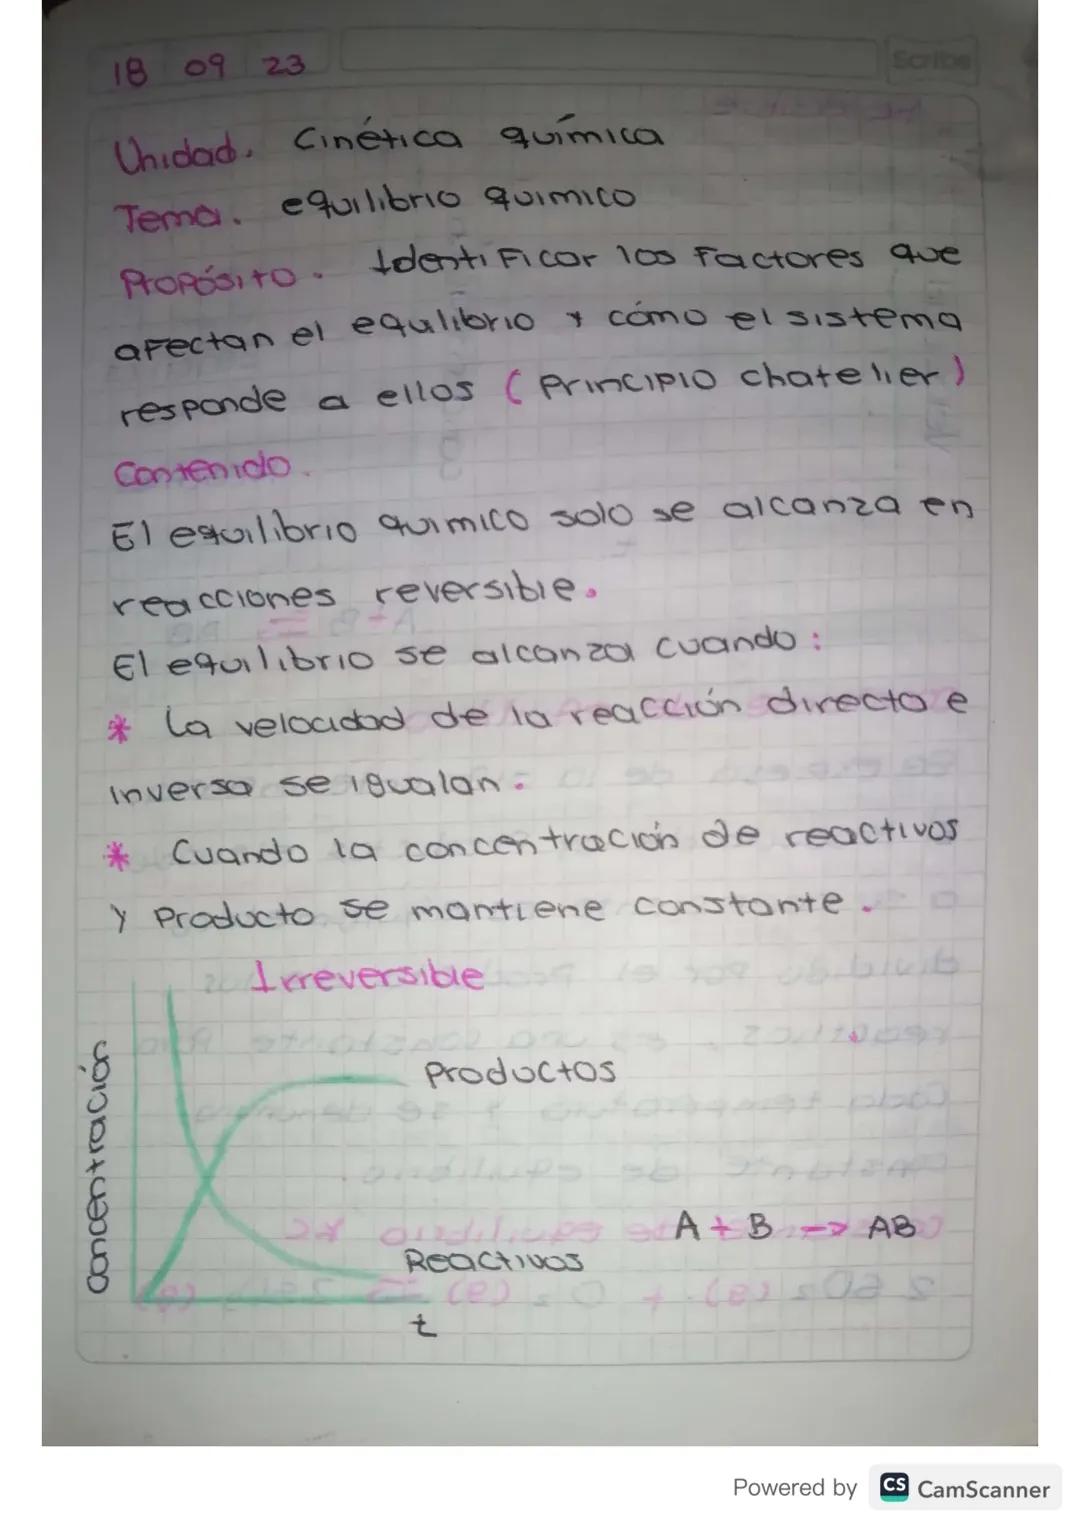 18 09 23
Scribe
Unidad. Cinética química
Tema. equilibrio quimico
Propósito. Identificar los factores que
afectan el equlibrio y cómo el sistema
responde a ellos (Principio chatelier)
Contenido.
El equilibrio quimico solo se alcanza en
reacciones reversible.
El equilibrio se alcanza cuando:
* La velocidad de la reacción directa e
inversa se igualan.
* Cuando la concentración de reactivos
y Producto se mantiene constante.
Irreversible
concentración
Productos
A + B → AB
Reactivos
t
Powered by CS CamScanner